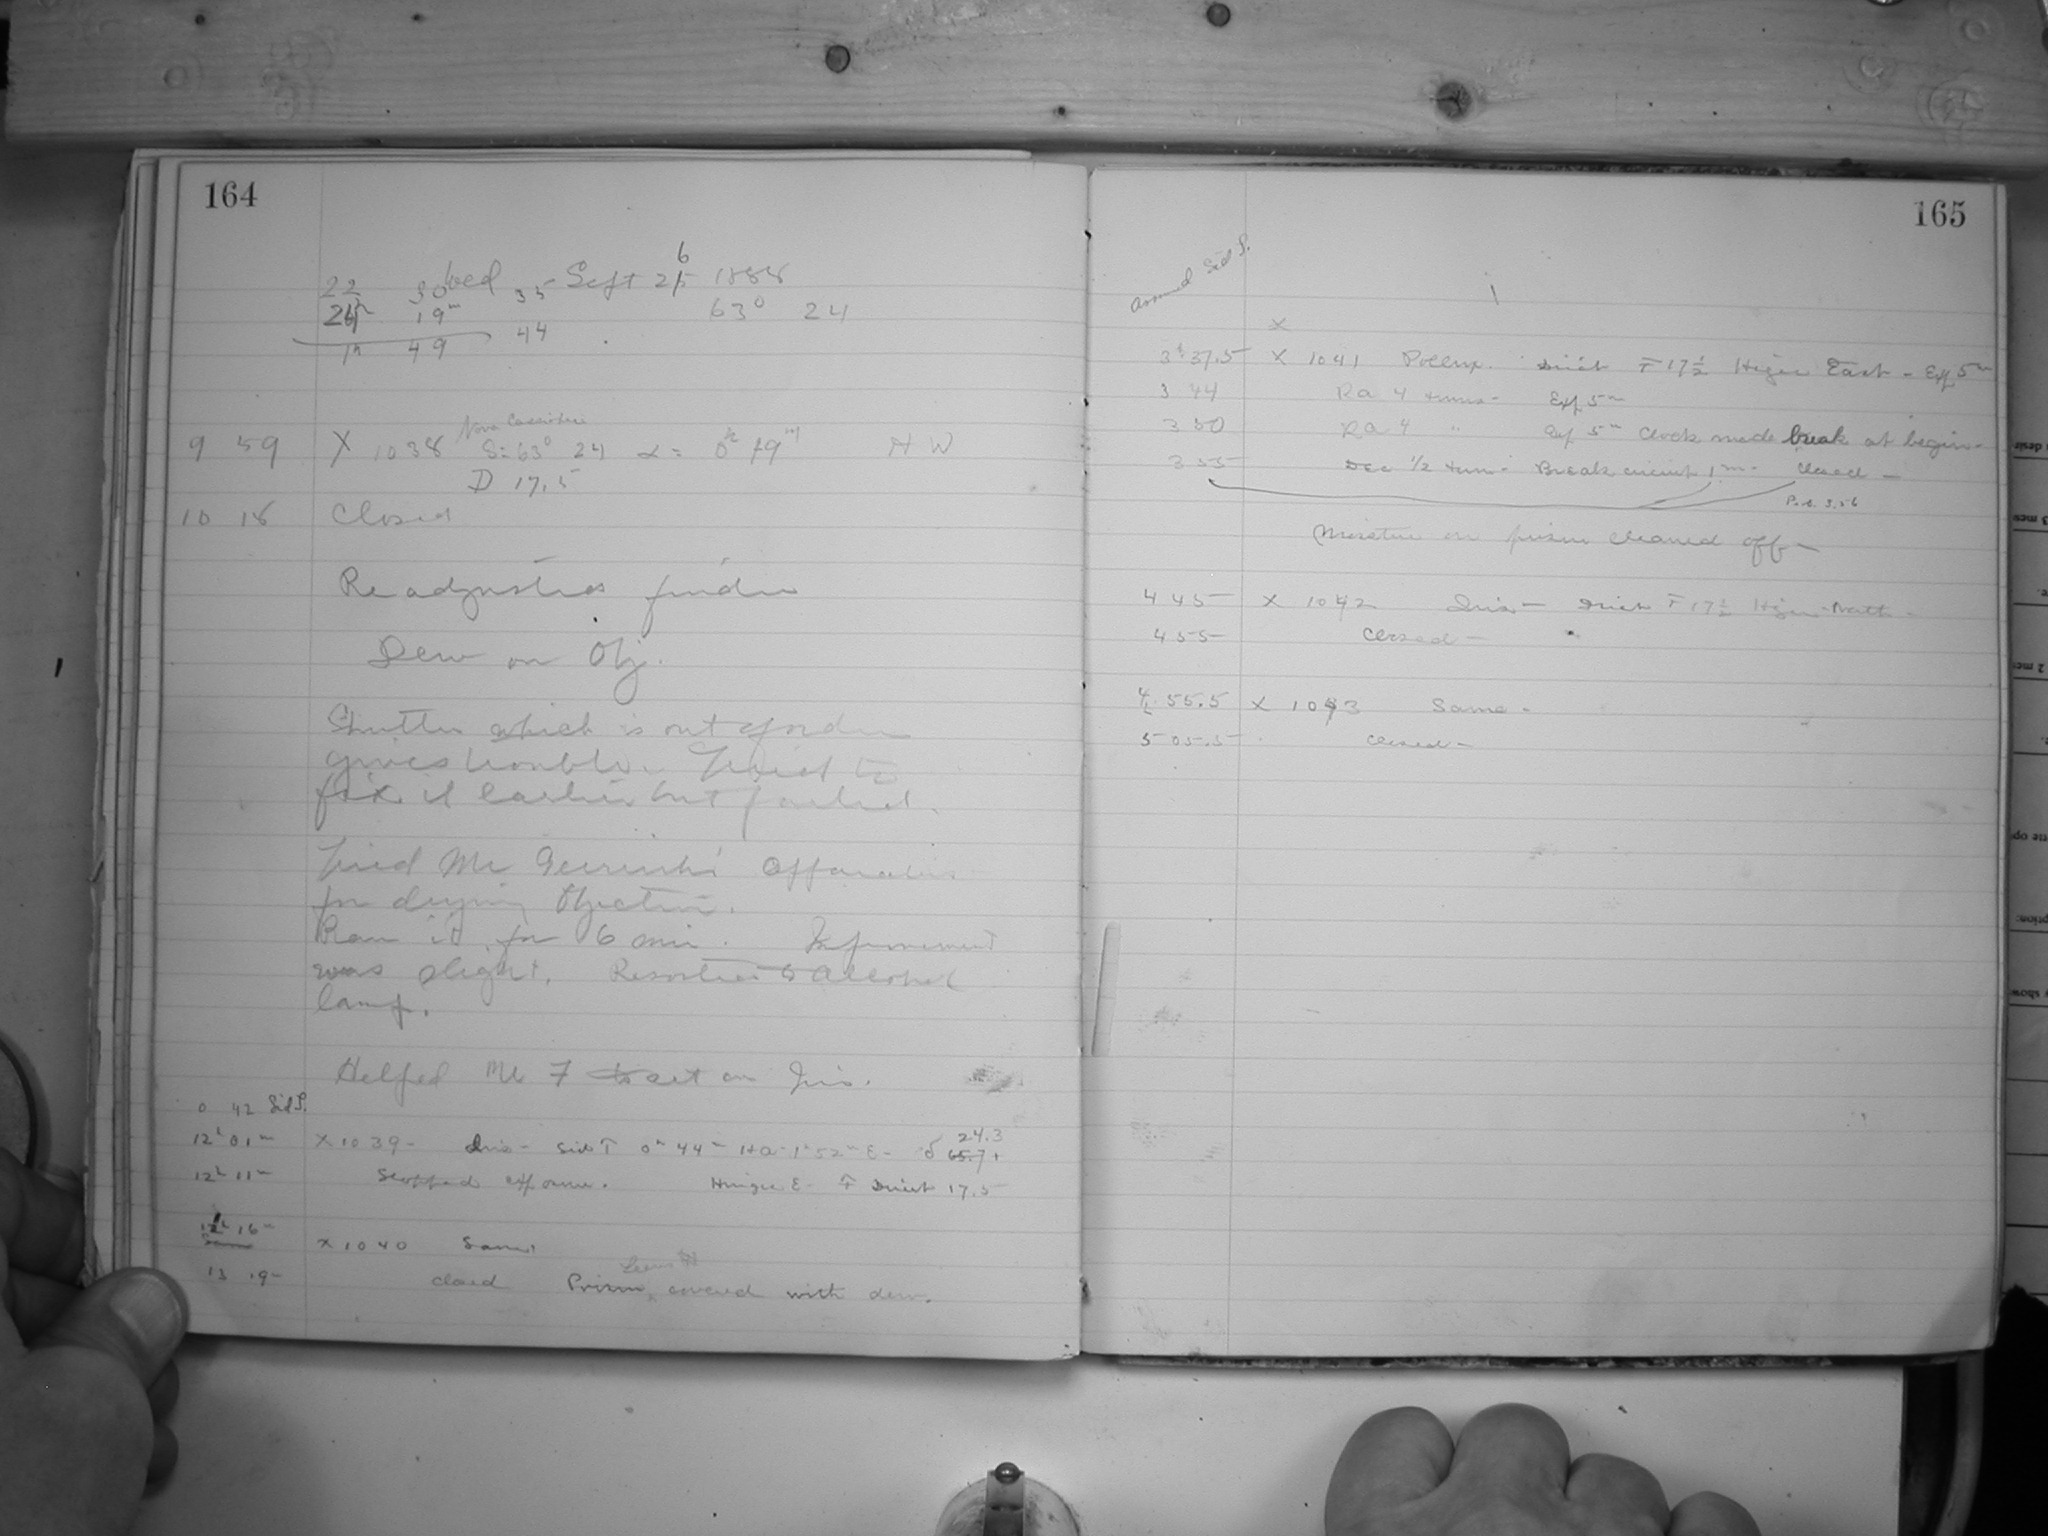 164
Wed Sept 26 1888
22 30 35
24h 19m 44
1h 49
63° 24
Nova Cassiopeiae
9 59 X 1038 δ = 63° 24 α = 0h 19m H W
D 17.5
10 18 Closed
Readjusted finder
Dew on Obj.
Shutter which is out of order
gives trouble. Tried to
fix it earlier but failed.
Tried Mr Gerrish's apparatus
for drying Objective.
Ran it for 6 min. Improvement
was slight. Resorted to alcohol
lamp.
Helped Mr F to set on
0 42 Sid T.
12h 01m X 1039 - Sid T 0h 44m HA - 1h 52m E - δ 65.7+ 24.3
12h 11m Stopped exposure. Hinge E - F Direct 17.5
12h 16m X 1040 Same
13 19 - closed Prism covered with dew.
165
assumed Sid T.
X
3h 37.5 X 1041 Pollux. Direct F 17 1/2 Hinge East - Exp 5m
3 44 RA 4 turns - Exp 5m
3 50 RA 4 " Exp 5m Clock made break at begin-
3 55 Dec 1/2 turn - Break circuit 1m - Closed -
3.56
Moisture on prism cleaned off -
4 45 X 1042 Direct F 17 1/2 Hinge North -
4 55 Closed -
4 55.5 X 1043 Same -
5 05.5 Closed -